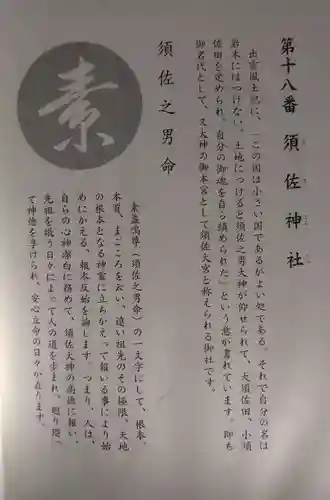 第十八番 須佐神社
出雲風土記に、「この国は小さい国であるがよい処である。それで自分の名は
岩木にはつけない。土地につけると須佐之男大神が仰せられて、大須佐田、小須
佐田を定められ。自分の御魂を自ら鎮められた」という意が書れています。御名
御名代として、又大神の御本宮として須佐大宮と称えられる御社です。
須佐之男命
素
素盞嗚尊（須佐之男命）の一文字にして、根本、
本質、まごころを云い、遠い祖先のその極限、天地
の根本となる神霊に立ちかえって報いる事により始
めにかえる、報本反始を論します。つまり、人は、
自らの心神潔白に務めて、須佐大神の御徳に報い、
先祖を祇う日々によって人の道を歩まれ、廻り廻って
神徳を享けられ、安心立命の日々が在ります。